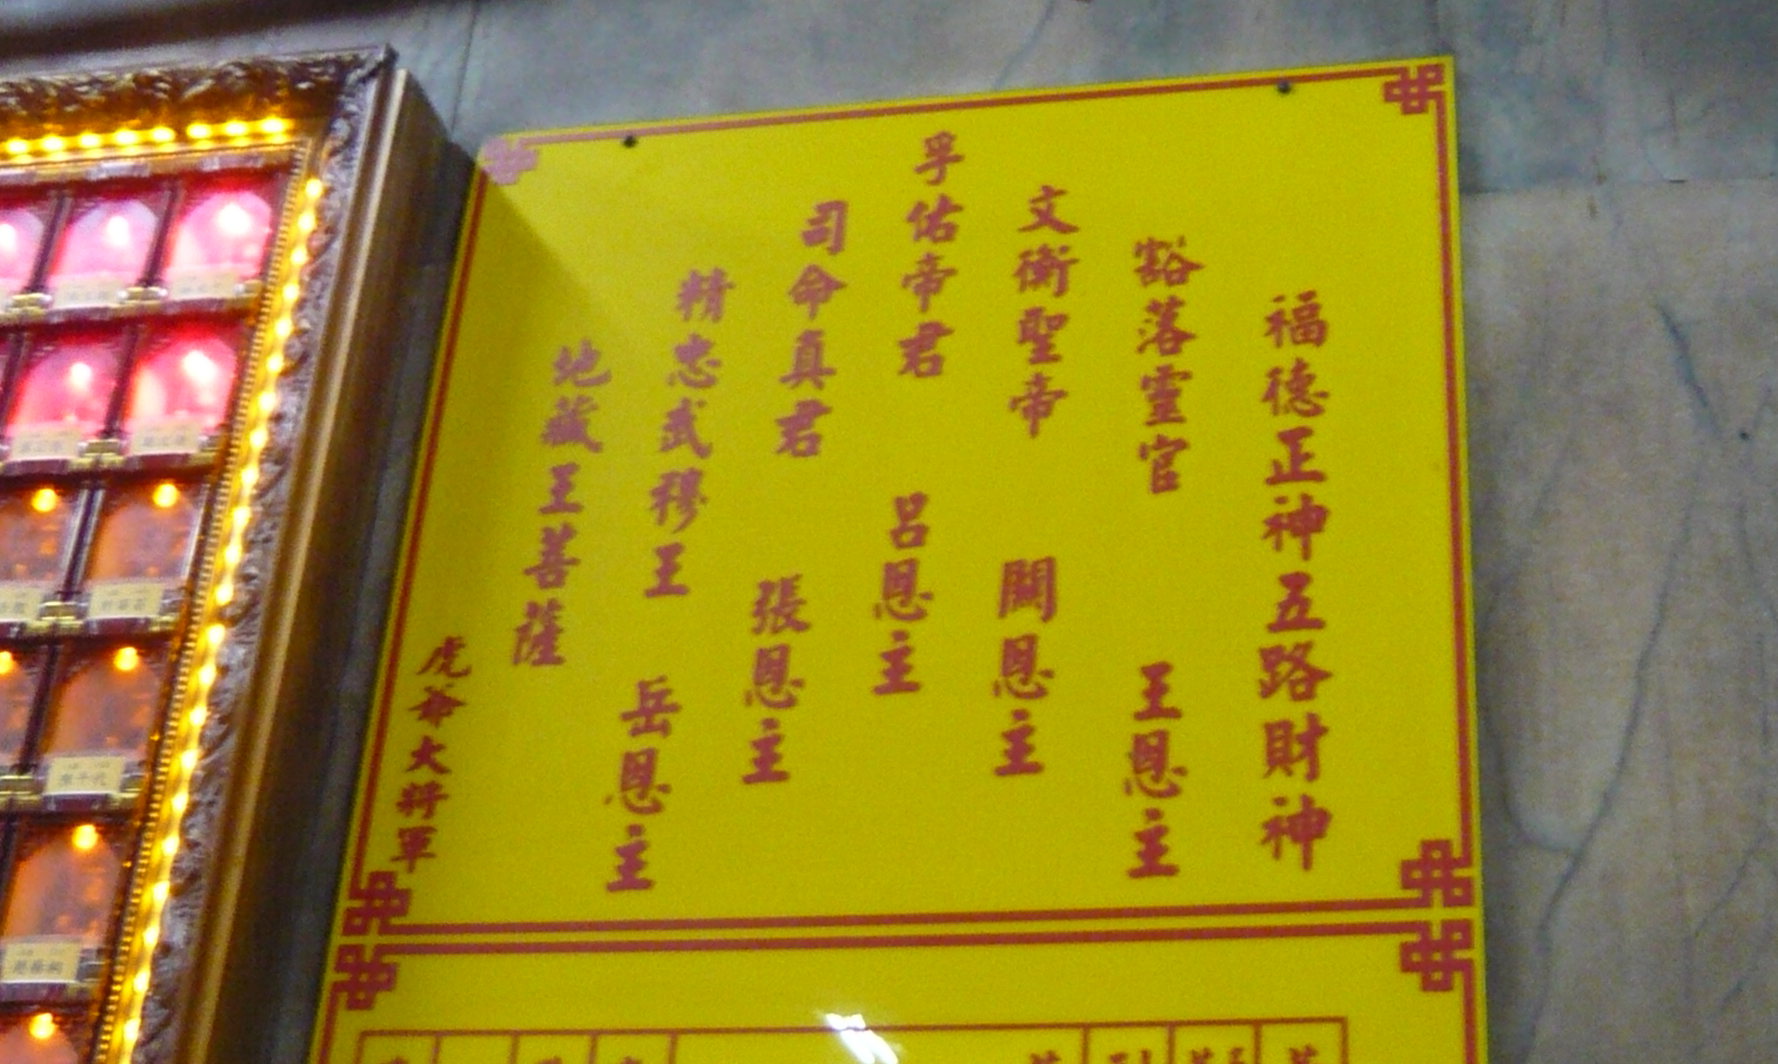 福德正神五路財神
豁落靈官 王恩主
文衡聖帝 關恩主
孚佑帝君 呂恩主
司命真君 張恩主
精忠武穆王 岳恩主
地藏王菩薩
虎爺大將軍